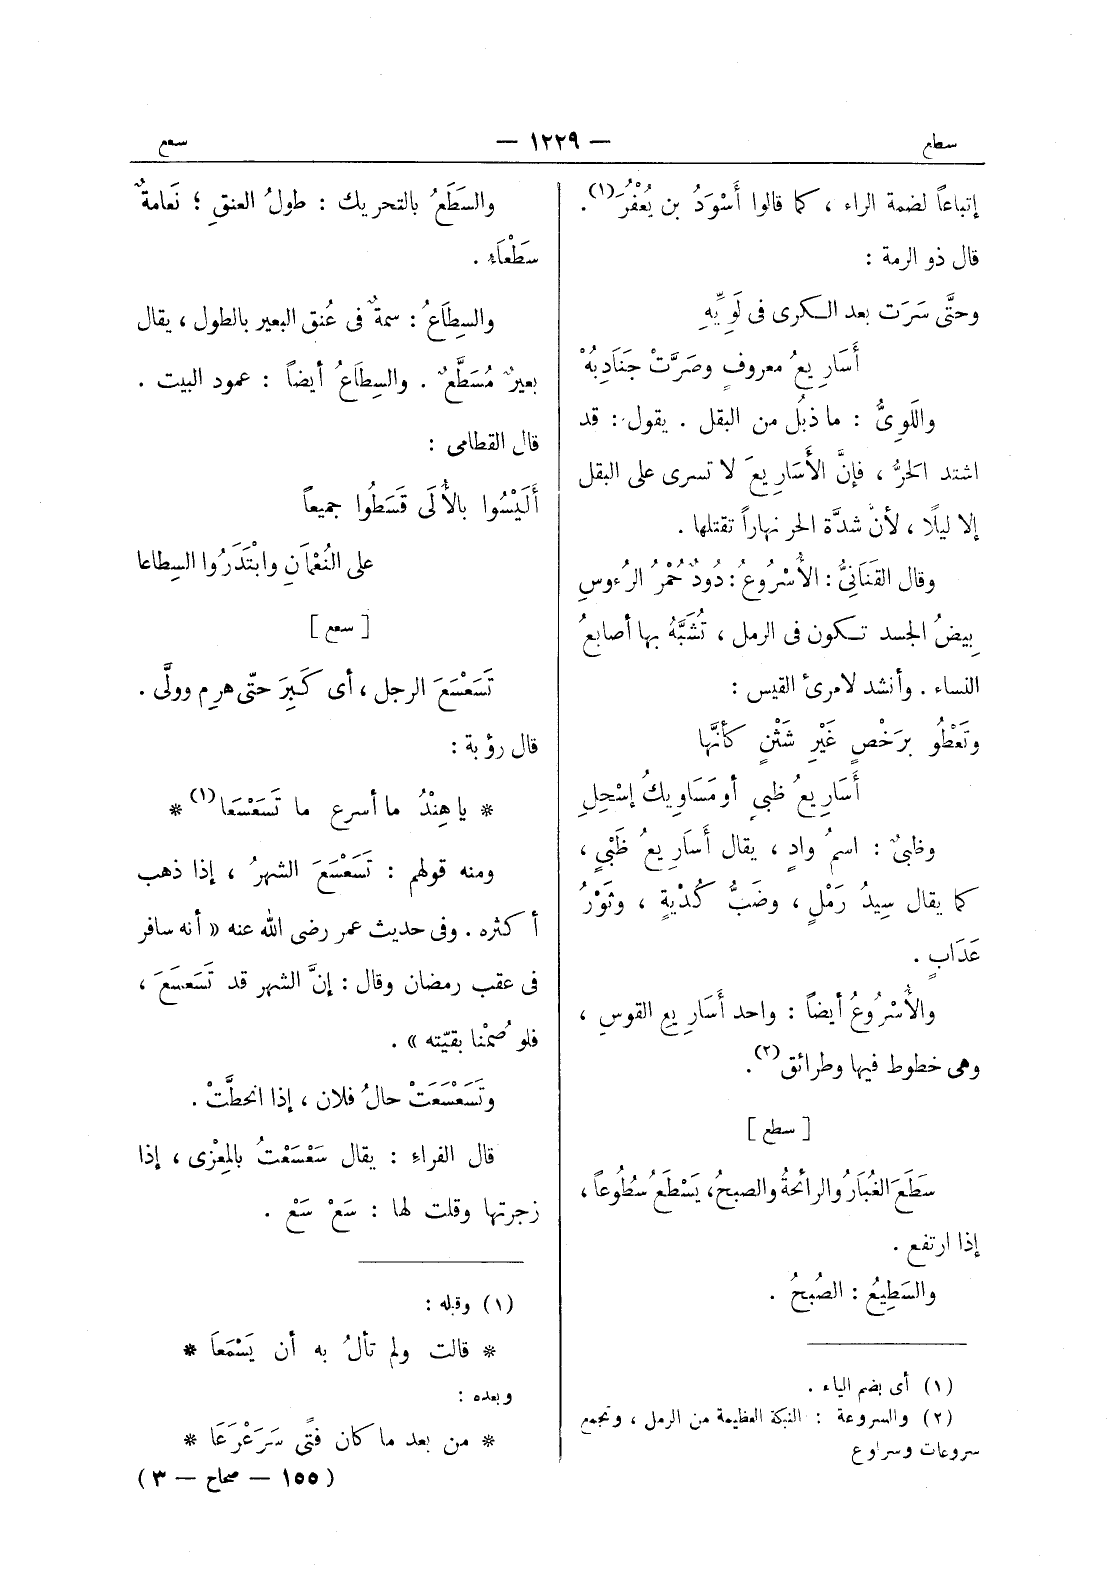 سطع
— ١٢٢٩ —
سعع
إتباعاً لضمة الراء ، كما قالوا أَسْوَدُ بن يُعْفُرَ(١) .
قال ذو الرمة :
وحتَّى سَرَت بعد الكرى فى لَوِيِّهِ
أَسَارِيعُ معروفٍ وصَرَّتْ جَنَادِبُهْ
واللَوِىُّ : ما ذبُل من البقل . يقول : قد
اشتد الحَرُّ ، فإنَّ الأَسَارِيعَ لا تسرى على البقل
إلا ليلًا ، لأنّ شدَّة الحر نهاراً تقتلها .
وقال القَنَانِىُّ : الأُسْرُوعُ : دُودٌ حُمْرُ الرُءوسِ
بِيضُ الجسد تكون فى الرمل ، تُشَبَّهُ بها أصابعُ
النساء . وأنشد لامرئ القيس :
وتَعْطُو بِرَخْصٍ غَيْرِ شَثْنٍ كأنَّها
أَسَارِيعُ ظبىٍ أو مَسَاوِيكُ إسْحِلِ
وظبىٌ : اسمُ وادٍ ، يقال أَسَارِيعُ ظَبْيٍ ،
كما يقال سِيدُ رَمْلٍ ، وضَبُّ كُدْيةٍ ، وثَوْرُ
عَدَابٍ .
والأُسْرُوعُ أيضاً : واحد أَسَارِيعِ القوسِ ،
وهى خطوط فيها وطرائق(٢) .
[ سطع ]
سَطَعَ الغُبَارُ والرائحةُ والصبحُ، يَسْطَعُ سُطُوعاً ،
إذا ارتفع .
والسَطِيعُ : الصُبحُ .
(١) أى بضم الياء .
(٢) والسروعة : النبكة العظيمة من الرمل ، وتجمع
سروعات وسراوع
والسَطَعُ بالتحريك : طولُ العنقِ ؛ نَعامةٌ
سَطْعَاءُ .
والسِطَاعُ : سمةٌ فى عُنق البعير بالطول ، يقال
بعيرٌ مُسَطَّعٌ . والسِطَاعُ أيضاً : عمود البيت .
قال القطامى :
أَلَيْسُوا بالأُلَى قَسَطُوا جميعاً
على النُعْمَانِ وابْتَدَرُوا السِطاعا
[ سعع ]
تَسَعْسَعَ الرجل ، أى كَبِرَ حتّى هرِم وولَّى .
قال رؤبة :
* يا هِنْدُ ما أسرع ما تَسَعْسَعَا(١) *
ومنه قولهم : تَسَعْسَعَ الشهرُ ، إذا ذهب
أكثره . وفى حديث عمر رضى الله عنه « أنه سافر
فى عقب رمضان وقال : إنَّ الشهر قد تَسَعسَعَ ،
فلو صُمْنا بقيّته » .
وتَسَعْسَعَتْ حالُ فلان ، إذا انحطَّتْ .
قال الفراء : يقال سَعْسَعْتُ بالمِعْزى ، إذا
زجرتها وقلت لها : سَعْ سَعْ .
(١) وقبله :
* قالت ولم تألُ به أن يَسْمَعَا *
وبعده :
* من بعد ما كان فتًى سَرَعْرَعَا *
( ١٥٥ — صحاح — ٣ )